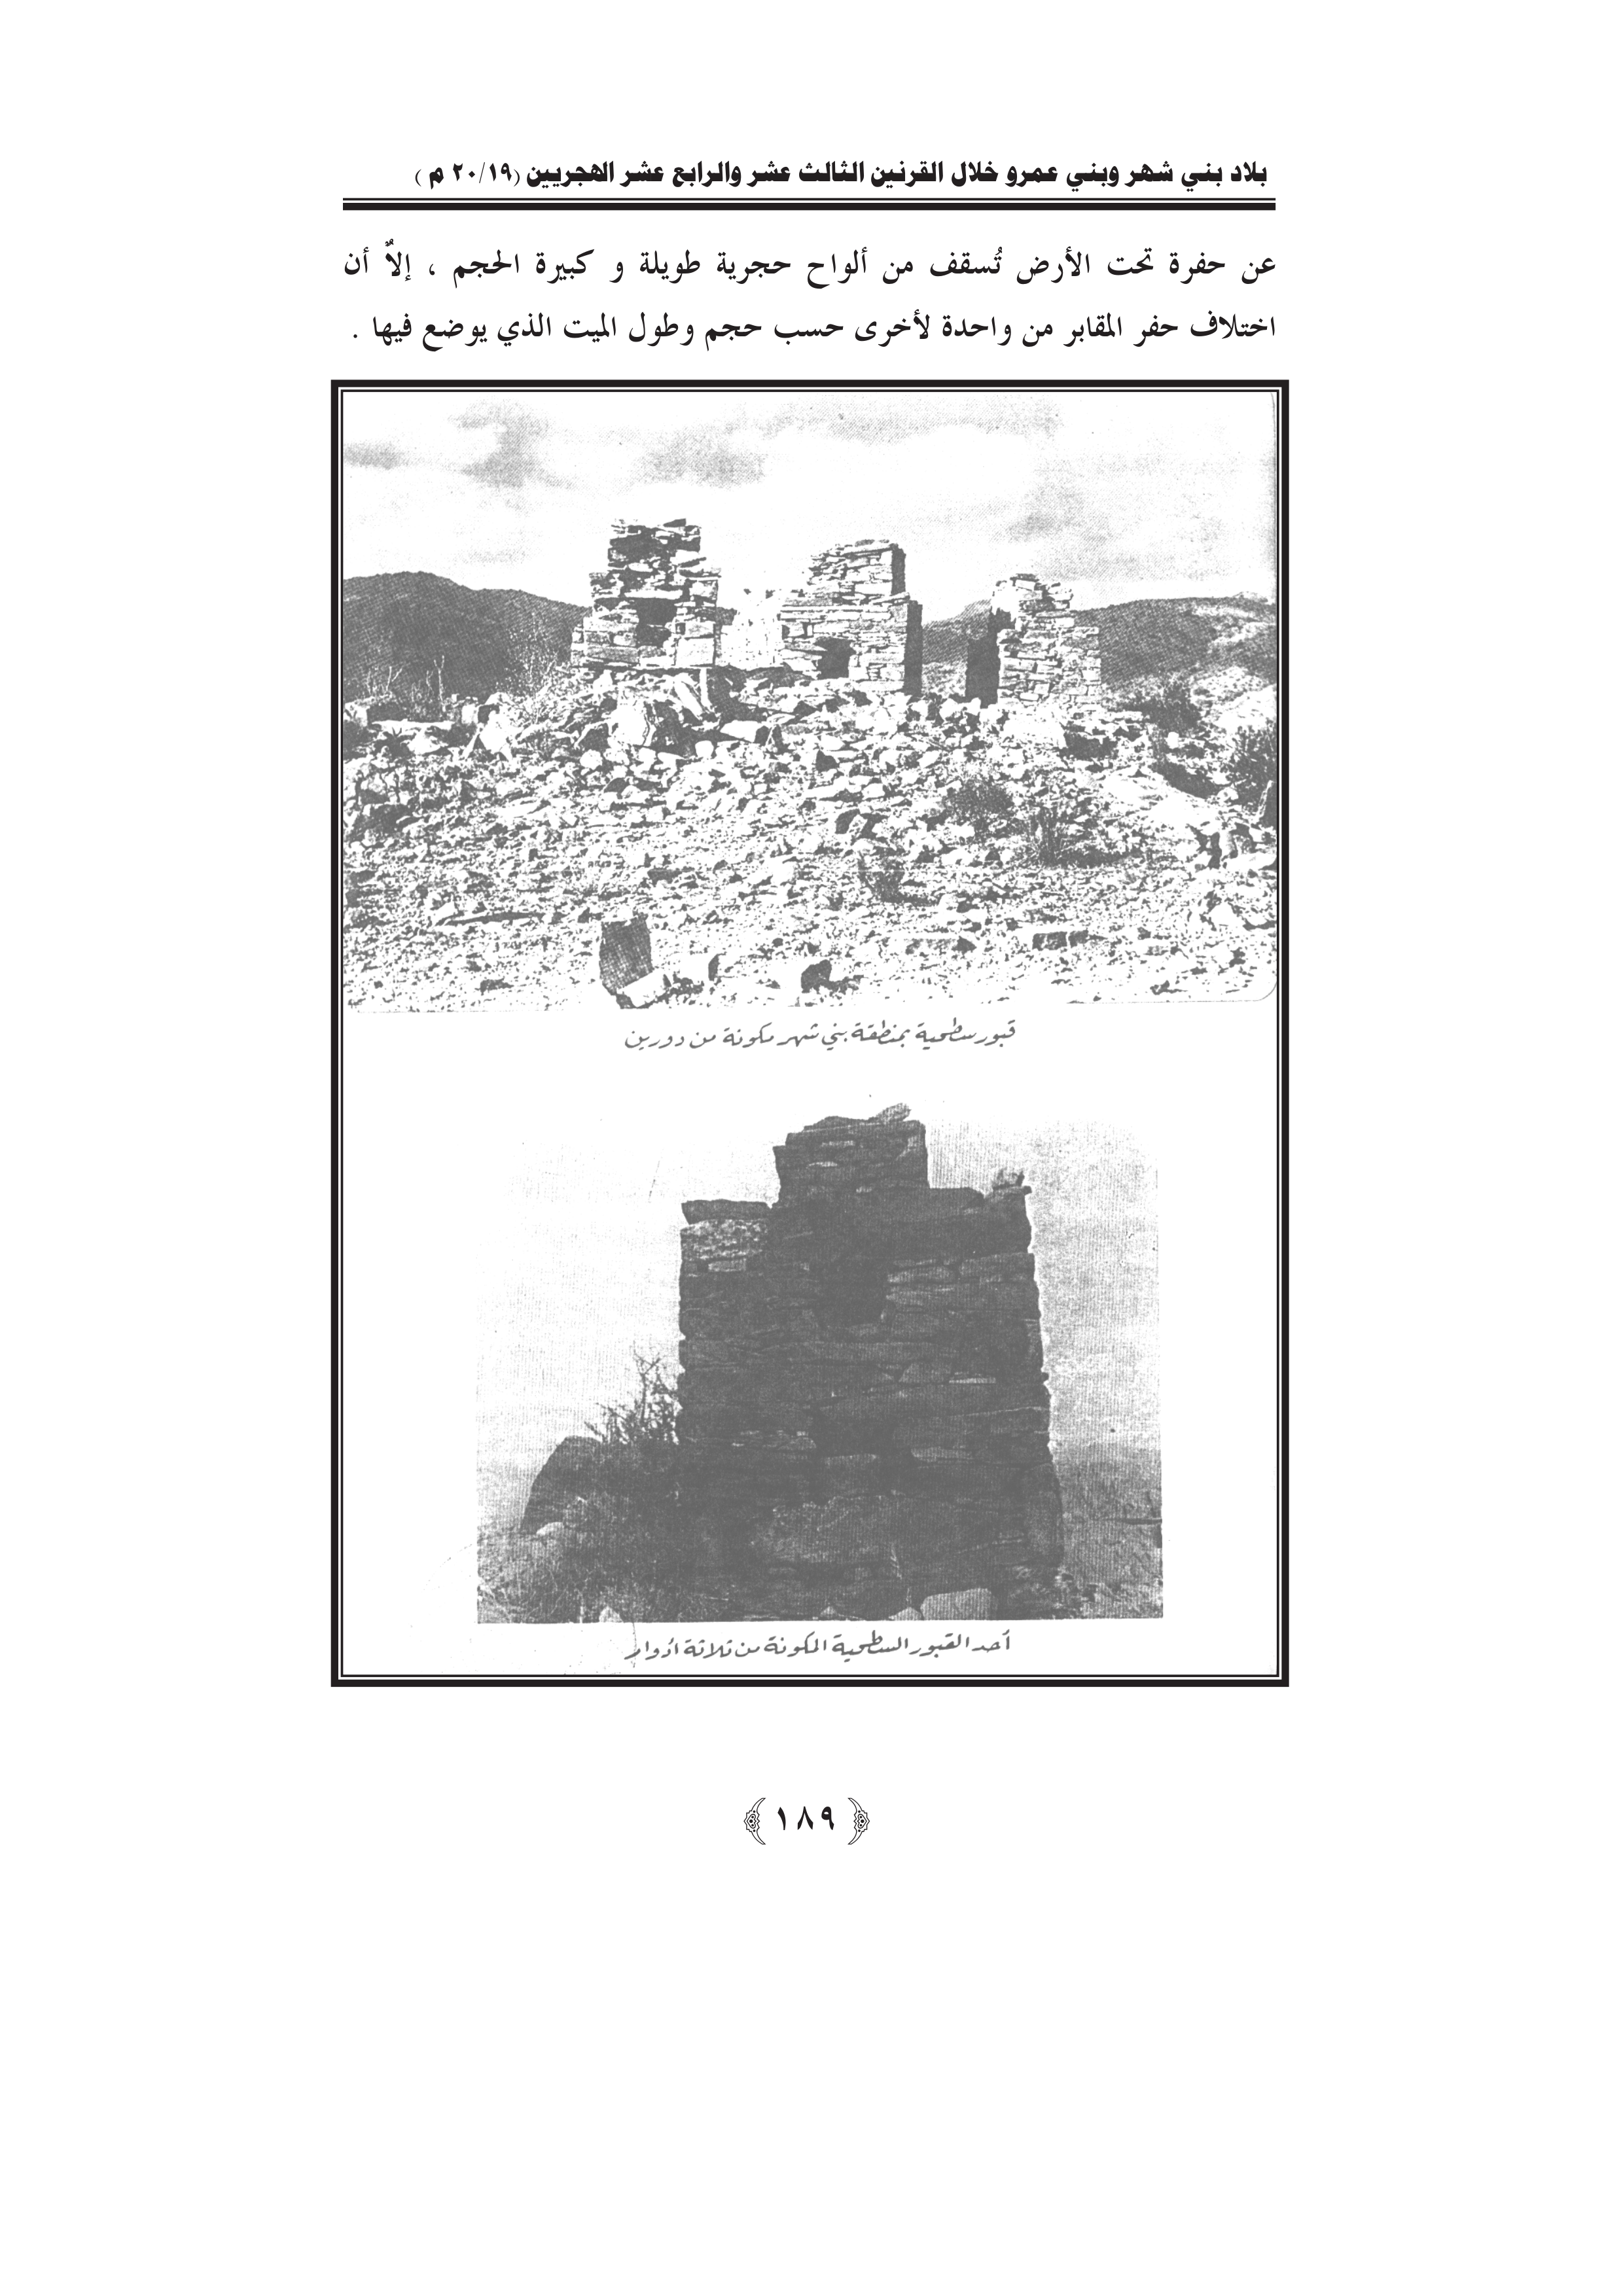 بلاد بني شهر وبني عمرو خلال القرنين الثالث عشر والرابع عشر الهجريين (٢٠/١٩ م )
عن حفرة تحت الأرض تُسقف من ألواح حجرية طويلة و كبيرة الحجم ، إلاّ أن
اختلاف حفر المقابر من واحدة لأخرى حسب حجم وطول الميت الذي يوضع فيها .
قبور سطحية بمنطقة بني شهر مكونة من دورين
أحد القبور السطحية المكونة من ثلاثة أدوار
﴿ ١٨٩ ﴾